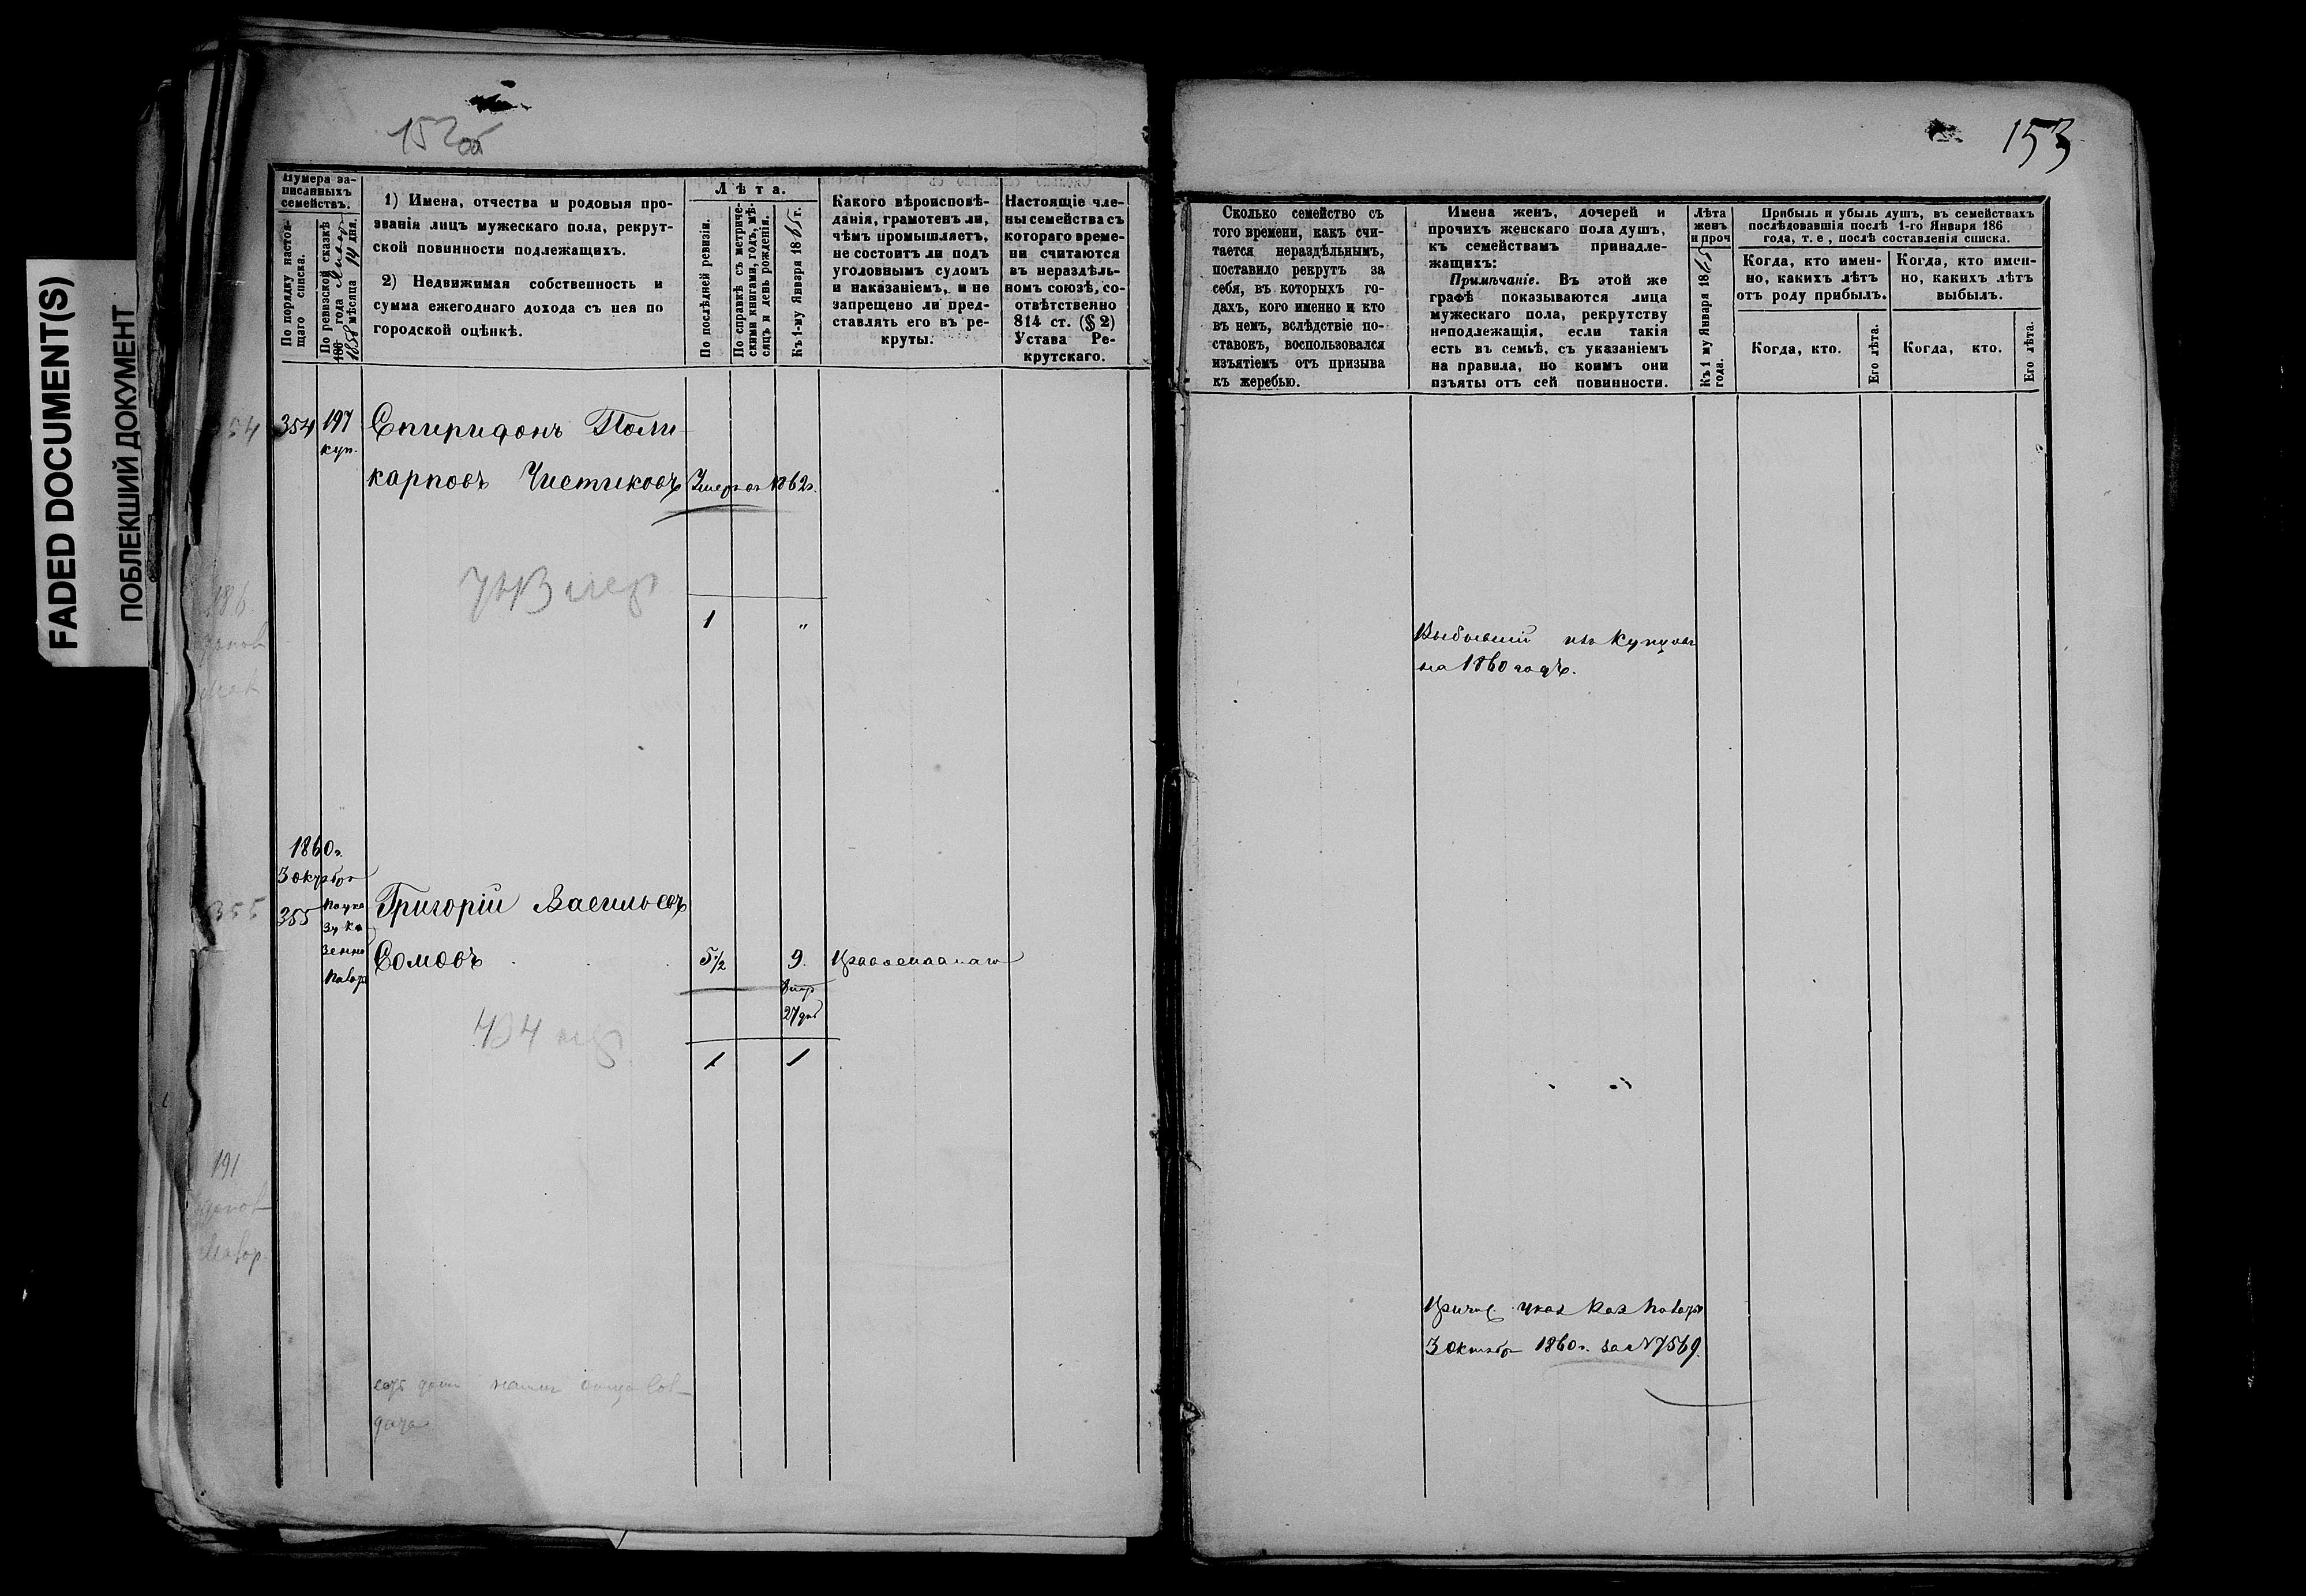 FADED DOCUMENT(S)
ПОБЛЕКШИЙ ДОКУМЕНТ
152об
Нумера за-
писанныхъ
семействъ.
По порядку настоя-
щаго списка.
По ревизской сказкѣ
186 года
1858 мѣсяца 14 дня.
1) Имена, отчества и родовыя про-
званія лицъ мужескаго пола, рекрут-
ской повинности подлежащихъ.
2) Недвижимая собственность и
сумма ежегоднаго дохода съ нея по
городской оцѣнкѣ.
Лѣта.
По послѣдней ревизіи.
По справкѣ съ метриче-
скими книгами, годъ, мѣ-
сяцъ и день рожденія.
Къ 1-му Января 1865 г.
Какого вѣроисповѣ-
данія, грамотенъ ли,
чѣмъ промышляетъ,
не состоитъ ли подъ
уголовнымъ судомъ
и наказаніемъ, и не
запрещено ли пред-
ставлять его въ ре-
круты.
Настоящіе чле-
ны семейства съ
котораго време-
ни считаются
въ нераздѣль-
номъ союзѣ, со-
отвѣтственно
814 ст. (§ 2)
Устава Ре-
крутскаго.
354
354
197
куп.
Спиридонъ Поли-
карповъ Чистиковъ
Умеръ въ 1862г.
1
"
1860г.
3 октября
355
355
По ука
зу Ка
зенной
Палаты
Григорій Васильевъ
Сомовъ
5½
9.
Православнаго
27 дня
1
1
191
153
Сколько семейство съ
того времени, какъ счи-
тается нераздѣльнымъ,
поставило рекрутъ за
себя, въ которыхъ го-
дахъ, кого именно и кто
въ немъ, вслѣдствіе по-
ставокъ, воспользовался
изъятіемъ отъ призыва
къ жеребью.
Имена женъ, дочерей и
прочихъ женскаго пола душъ,
къ семействамъ принадле-
жащихъ:
Примѣчаніе. Въ этой же
графѣ показываются лица
мужескаго пола, рекрутству
неподлежащія, если такія
есть въ семьѣ, съ указаніемъ
на правила, по коимъ они
изъяты отъ сей повинности.
Лѣта
женъ
и проч
Къ 1 му Января 1865
года.
Прибыль и убыль душъ, въ семействахъ
послѣдовавшія послѣ 1-го Января 186
года, т. е, послѣ составленія списка.
Когда, кто имен-
но, какихъ лѣтъ
отъ роду прибылъ.
Когда, кто.
Его лѣта.
Когда, кто имен-
но, какихъ лѣтъ
выбылъ.
Когда, кто.
Его лѣта.
Выбывшій изъ Купцовъ
на 1860 годъ.
Причис. указ Каз Палаты
3 Октября 1860г. за № 7569.